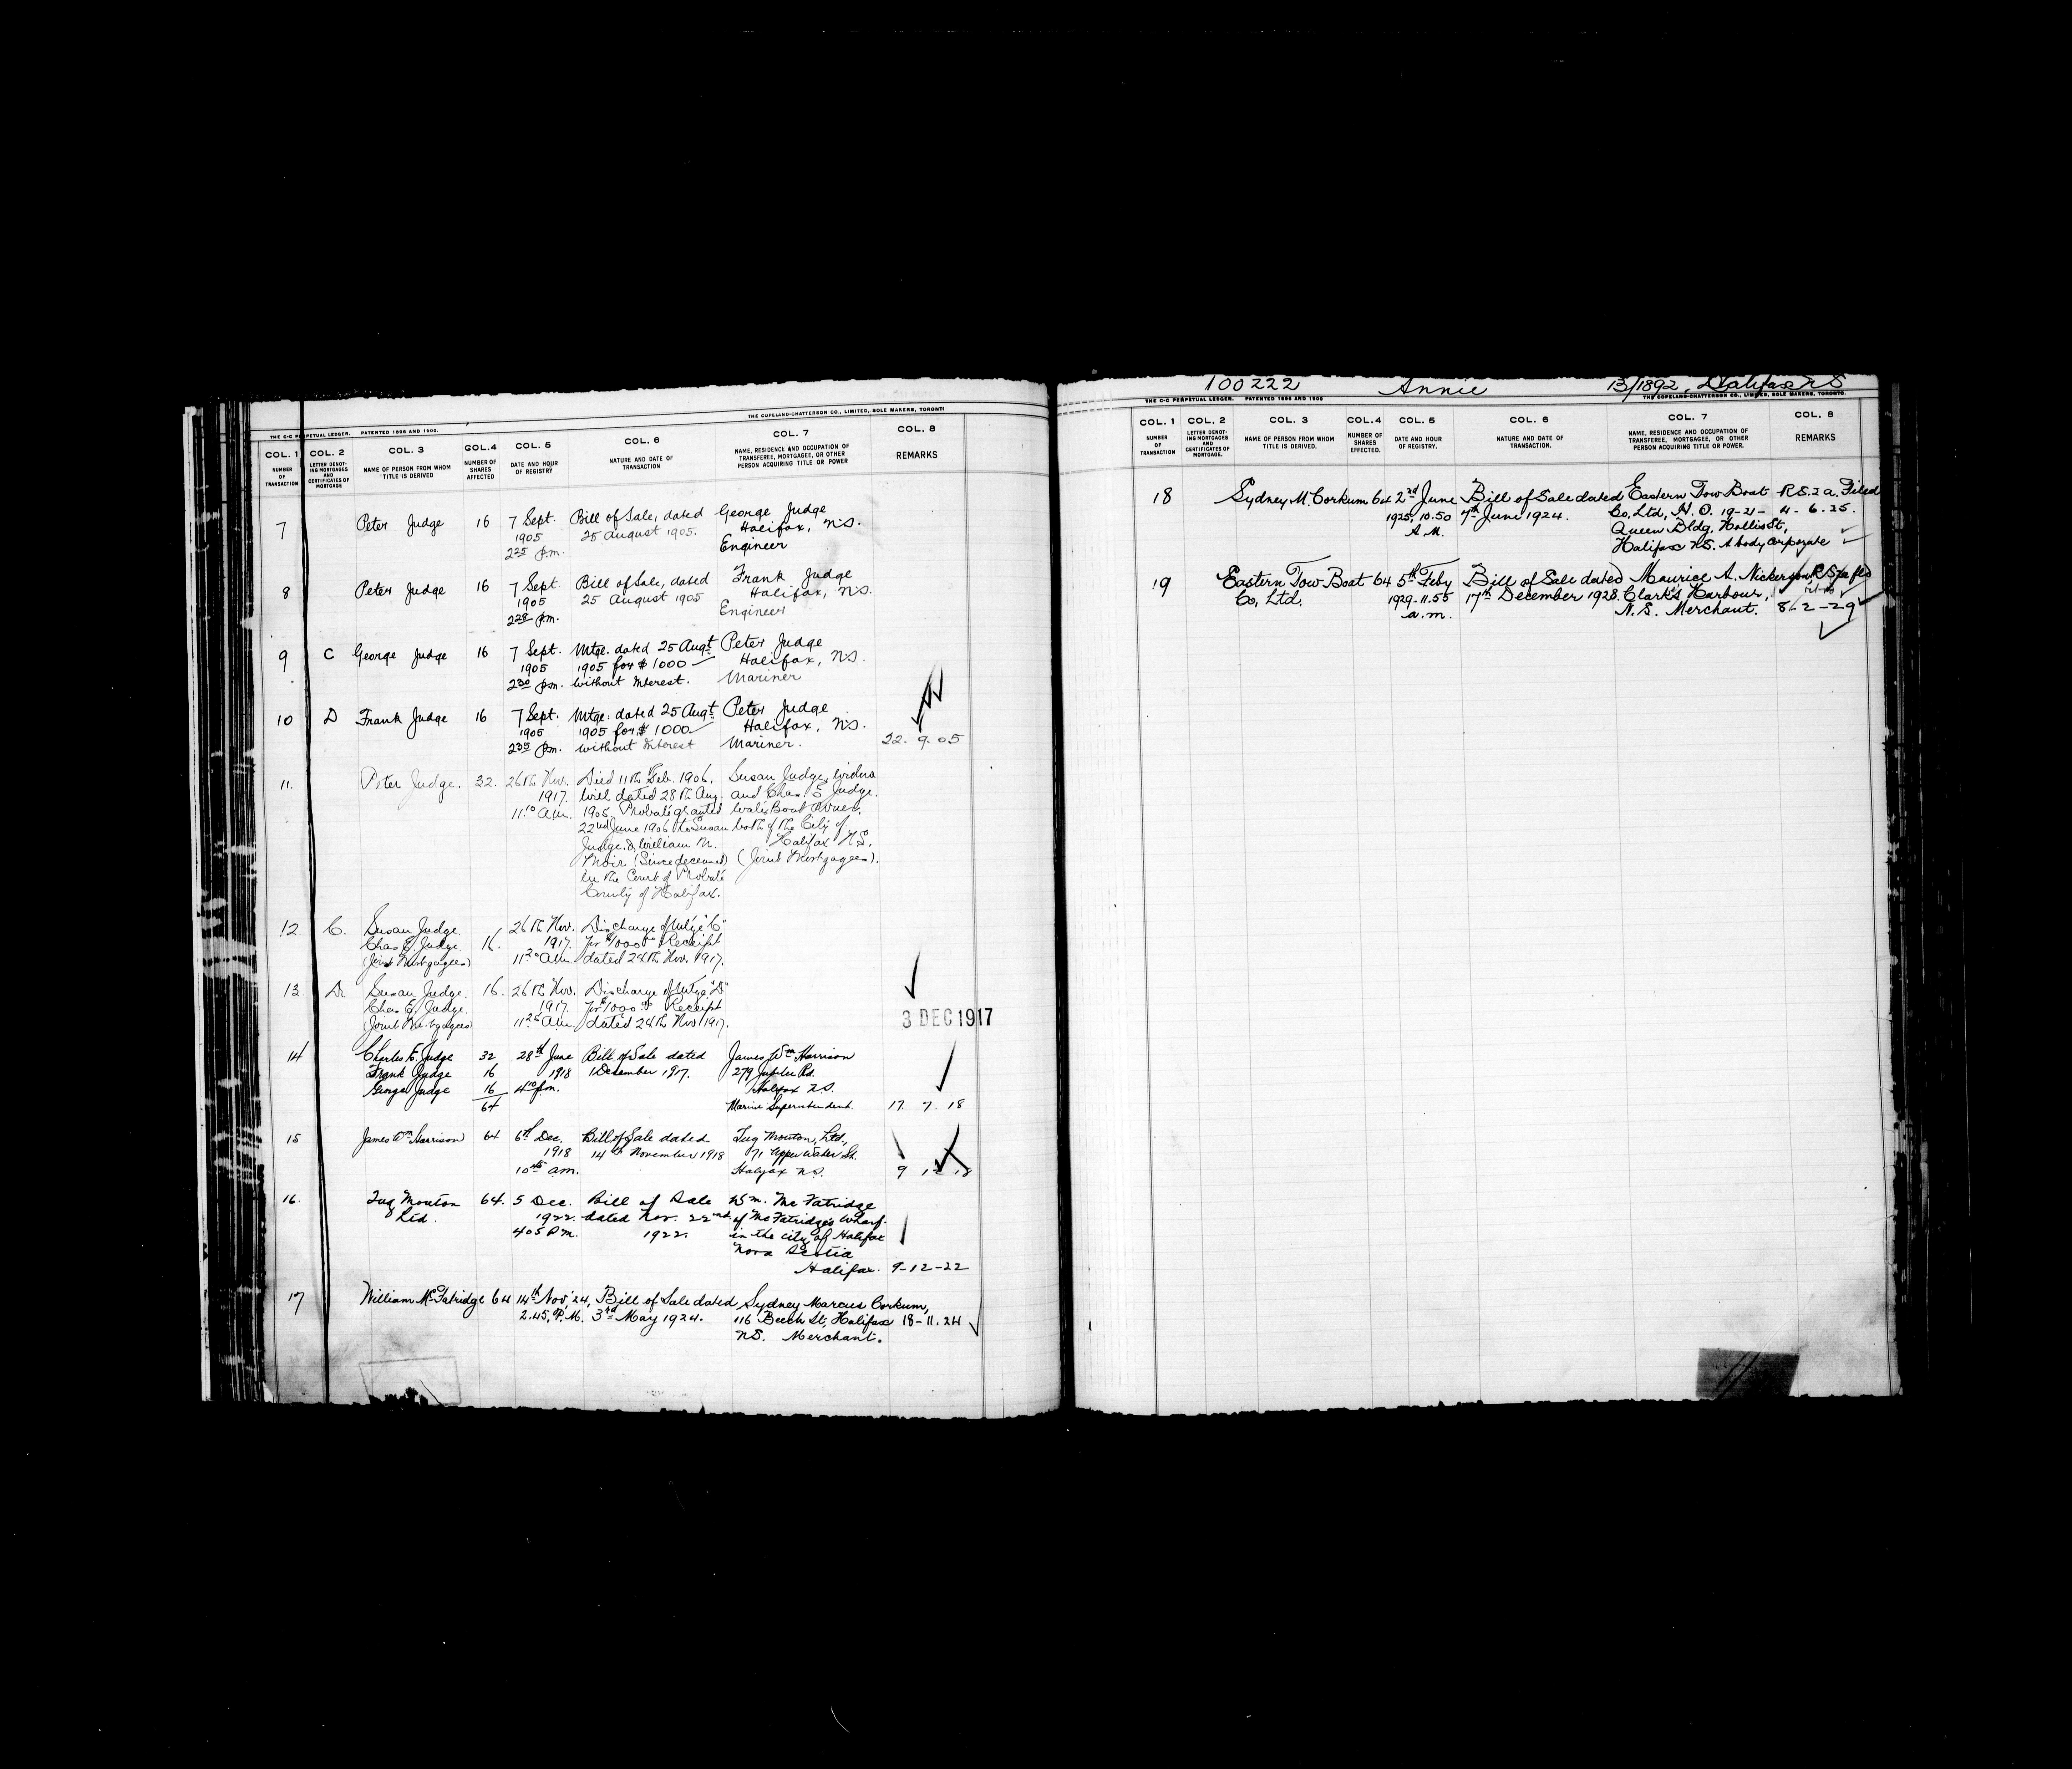 THE C-C PERPETUAL LEDGER. PATENTED 1896 AND 1900. THE COPELAND-CHATTERSON CO., LIMITED, SOLE MAKERS, TORONTO
COL. 1 COL. 2 COL. 3 COL. 4 COL. 5 COL. 6 COL. 7 COL. 8
NUMBER OF TRANSACTION
LETTER DENOTING MORTGAGES AND CERTIFICATES OF MORTGAGE
NAME OF PERSON FROM WHOM TITLE IS DERIVED
NUMBER OF SHARES AFFECTED
DATE AND HOUR OF REGISTRY
NATURE AND DATE OF TRANSACTION
NAME, RESIDENCE AND OCCUPATION OF TRANSFEREE, MORTGAGEE, OR OTHER PERSON ACQUIRING TITLE OR POWER
REMARKS
7 Peter Judge 16 7 Sept. Bill of Sale, dated George Judge
1905 25 August 1905. Halifax, N.S.
2 25 p.m. Engineer
8 Peter Judge 16 7 Sept Bill of Sale, dated Frank Judge
1905 25 August 1905 Halifax, N.S.
2 28 p.m. Engineer
9 C George Judge 16 7 Sept. Mtge. dated 25 Augt Peter Judge
1905 1905 for $1000 Halifax, N.S.
2 30 p.m. without Interest. Mariner
10 D Frank Judge 16 7 Sept. Mtge. dated 25 Augt Peter Judge
1905 1905 for $1000 Halifax, N.S.
2 35 p.m. without Interest Mariner. 22. 9. 05
11. Peter Judge. 32. 26th Nov. Died 11th Feb. 1906. Susan Judge, widow
1917. Will dated 28th Aug. and Chas. E. Judge.
11.10 a.m. 1905. Probate granted Boat Owner.
22nd June 1906 to Susan both of the City of
Judge & William M. Halifax N.S.
Moir (Since deceased) (Joint Mortgagees).
in the Court of Probate
County of Halifax.
12. C. Susan Judge 26th Nov. Discharge of Mtge "C"
Chas E. Judge 16. 1917. for $1000 Receipt
(Joint Mortgagees) 11.20 a.m. dated 24th Nov. 1917.
13. D. Susan Judge. 16. 26th Nov. Discharge of Mtge "D"
Chas E. Judge. 1917. for $1000 Receipt
(Joint Mortgagees) 11.25 a.m. dated 24th Nov 1917.
3 DEC 1917
14 Charles E. Judge 32 28th June Bill of Sale dated James Wm Harrison
Frank Judge 16 1918 1 December 1917. 279 Rd.
George Judge 16 4 10 p.m. Halifax N.S.
64 Marine Superintendent. 17. 7. 18
15 James Wm Harrison 64 6th Dec. Bill of Sale dated Tug Mouton, Ltd.,
1918 14th November 1918 71 Upper Water St.
10 a.m. Halifax N.S. 9 12 18
16. Tug Mouton 64. 5 Dec. Bill of Sale Wm. McFatridge
Ltd. 1922. dated Nov. 22nd of McFatridge's Wharf.
4 05 P.M. 1922. in the city of Halifax
Nova Scotia
Halifax. 9-12-22
17 William McFatridge 64 14th Nov. '24, Bill of Sale dated Sydney Marcus Corkum,
2.45, P.M. 3rd May 1924. 116 Beech St, Halifax 18-11.24
N.S. Merchant.
100222 Annie 13/1892, Halifax NS
THE C-C PERPETUAL LEDGER. PATENTED 1896 AND 1900 THE COPELAND-CHATTERSON CO., LIMITED, SOLE MAKERS, TORONTO.
COL. 1 COL. 2 COL. 3 COL. 4 COL. 5 COL. 6 COL. 7 COL. 8
NUMBER OF TRANSACTION
LETTER DENOTING MORTGAGES AND CERTIFICATES OF MORTGAGE.
NAME OF PERSON FROM WHOM TITLE IS DERIVED.
NUMBER OF SHARES EFFECTED.
DATE AND HOUR OF REGISTRY.
NATURE AND DATE OF TRANSACTION.
NAME, RESIDENCE AND OCCUPATION OF TRANSFEREE, MORTGAGEE, OR OTHER PERSON ACQUIRING TITLE OR POWER.
REMARKS
18 Sydney M. Corkum 64 2nd June Bill of Sale dated Eastern Tow Boat R.S. 2 a. Filed
1925, 10.50 7th June 1924. Co, Ltd, H. O. 19-21- 4-6-25.
A.M. Queen Bldg, Hollis St,
Halifax N.S. A body corporate
19 Eastern Tow Boat 64 5th Feby Bill of Sale dated Maurice A. Nickerson,
Co, Ltd. 1929-11.55 17th December 1928. Clark's Harbour,
a.m. N.S. Merchant. 8-2-29